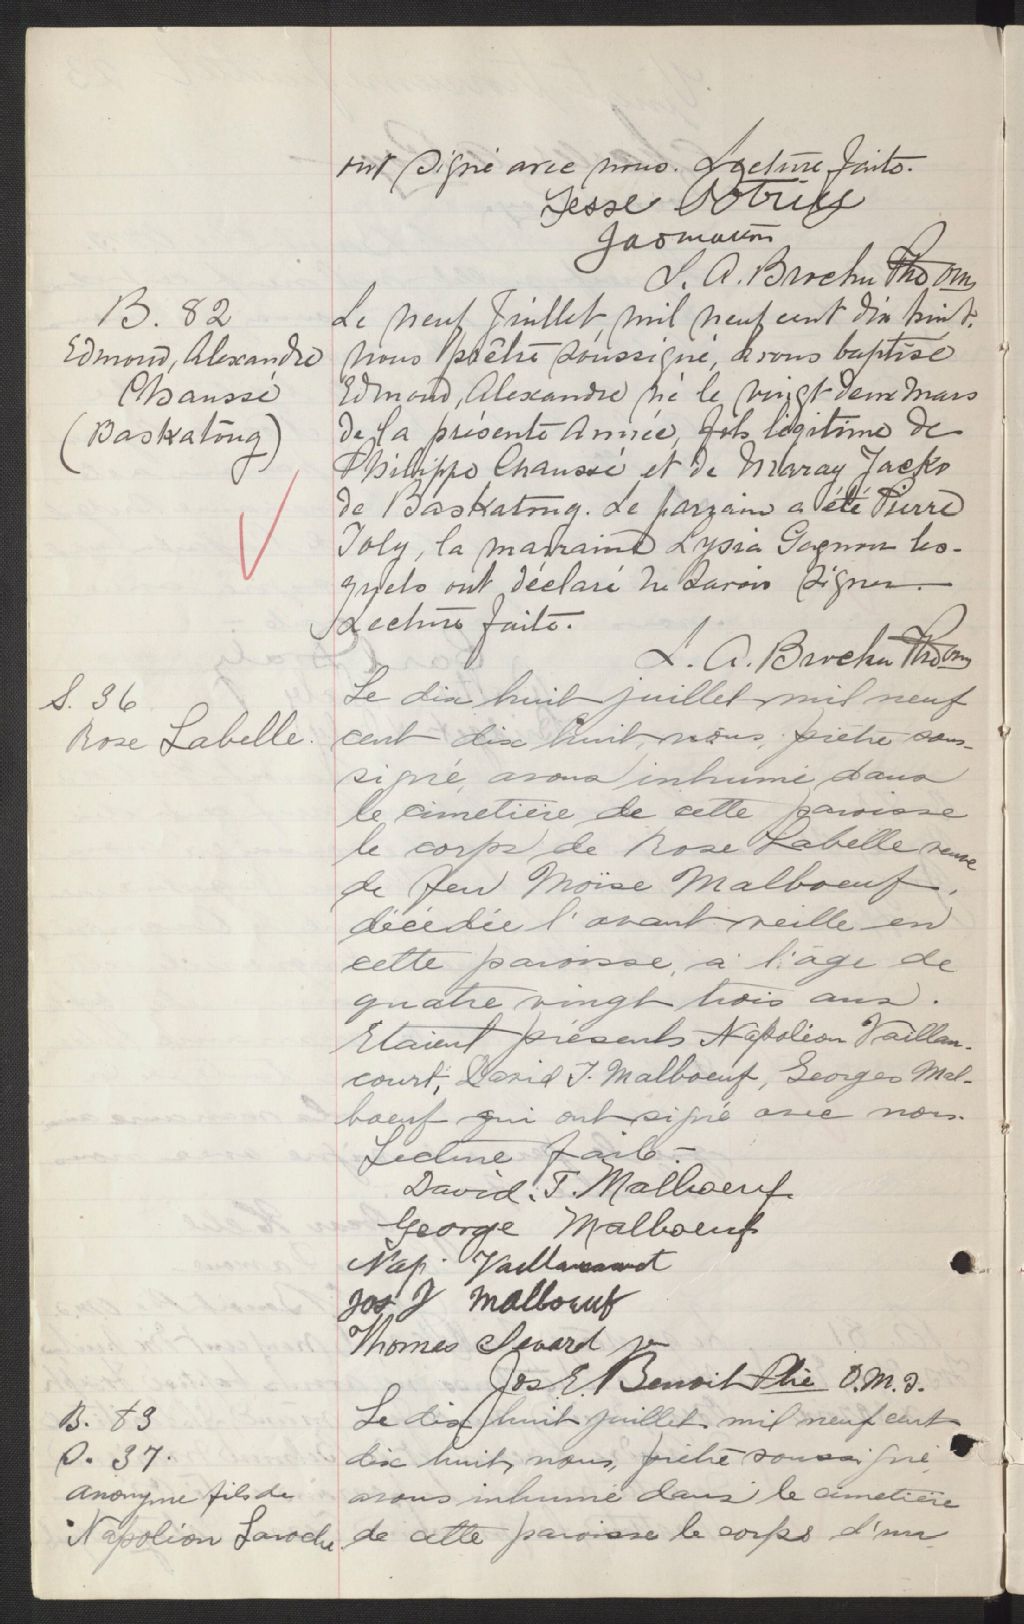 ont signé avec nous. Lecture faite.
Jesse
L. A. Brochu Ptre omi
B. 82
Edmond, Alexandre
Chaussé
(Baskatong)
Le neuf Juillet, mil neuf cent dix huit,
nous prêtre soussigné, avons baptisé
Edmond, Alexandre né le vingt deux Mars
de la présente Année, fils légitime de
Philippe Chaussé et de Maray Jacko
de Baskatong. Le parrain a été Pierre
Joly, la marraine Lysia Gagnon les-
quels ont déclaré ne savoir signer.
Lecture faite.
L. A. Brochu Ptre omi
S. 36
Rose Labelle.
Le dix huit juillet mil neuf
cent dix huit, nous, prêtre sous-
signé, avons inhumé dans
le cimetière de cette paroisse
le corps de Rose Labelle veuve
de feu Moïse Malboeuf,
décédée l'avant veille en
cette paroisse, à l'âge de
quatre vingt trois ans.
Etaient présents Napoléon Vaillan-
court, David T. Malboeuf, Georges Mal-
boeuf qui ont signé avec nous.
Lecture faite.-
David. T. Malboeuf
George Malboeuf
Nap. Vaillancourt
Jos J Malboeuf
Thomas
Jos E. Benoit Ptre O.M.I.
B. 83
S. 37.
Anonyme fils de
Napoléon Laroche
Le dix huit juillet mil neuf cent
dix huit, nous, prêtre soussigné,
avons inhumé dans le cimetière
de cette paroisse le corps d'un